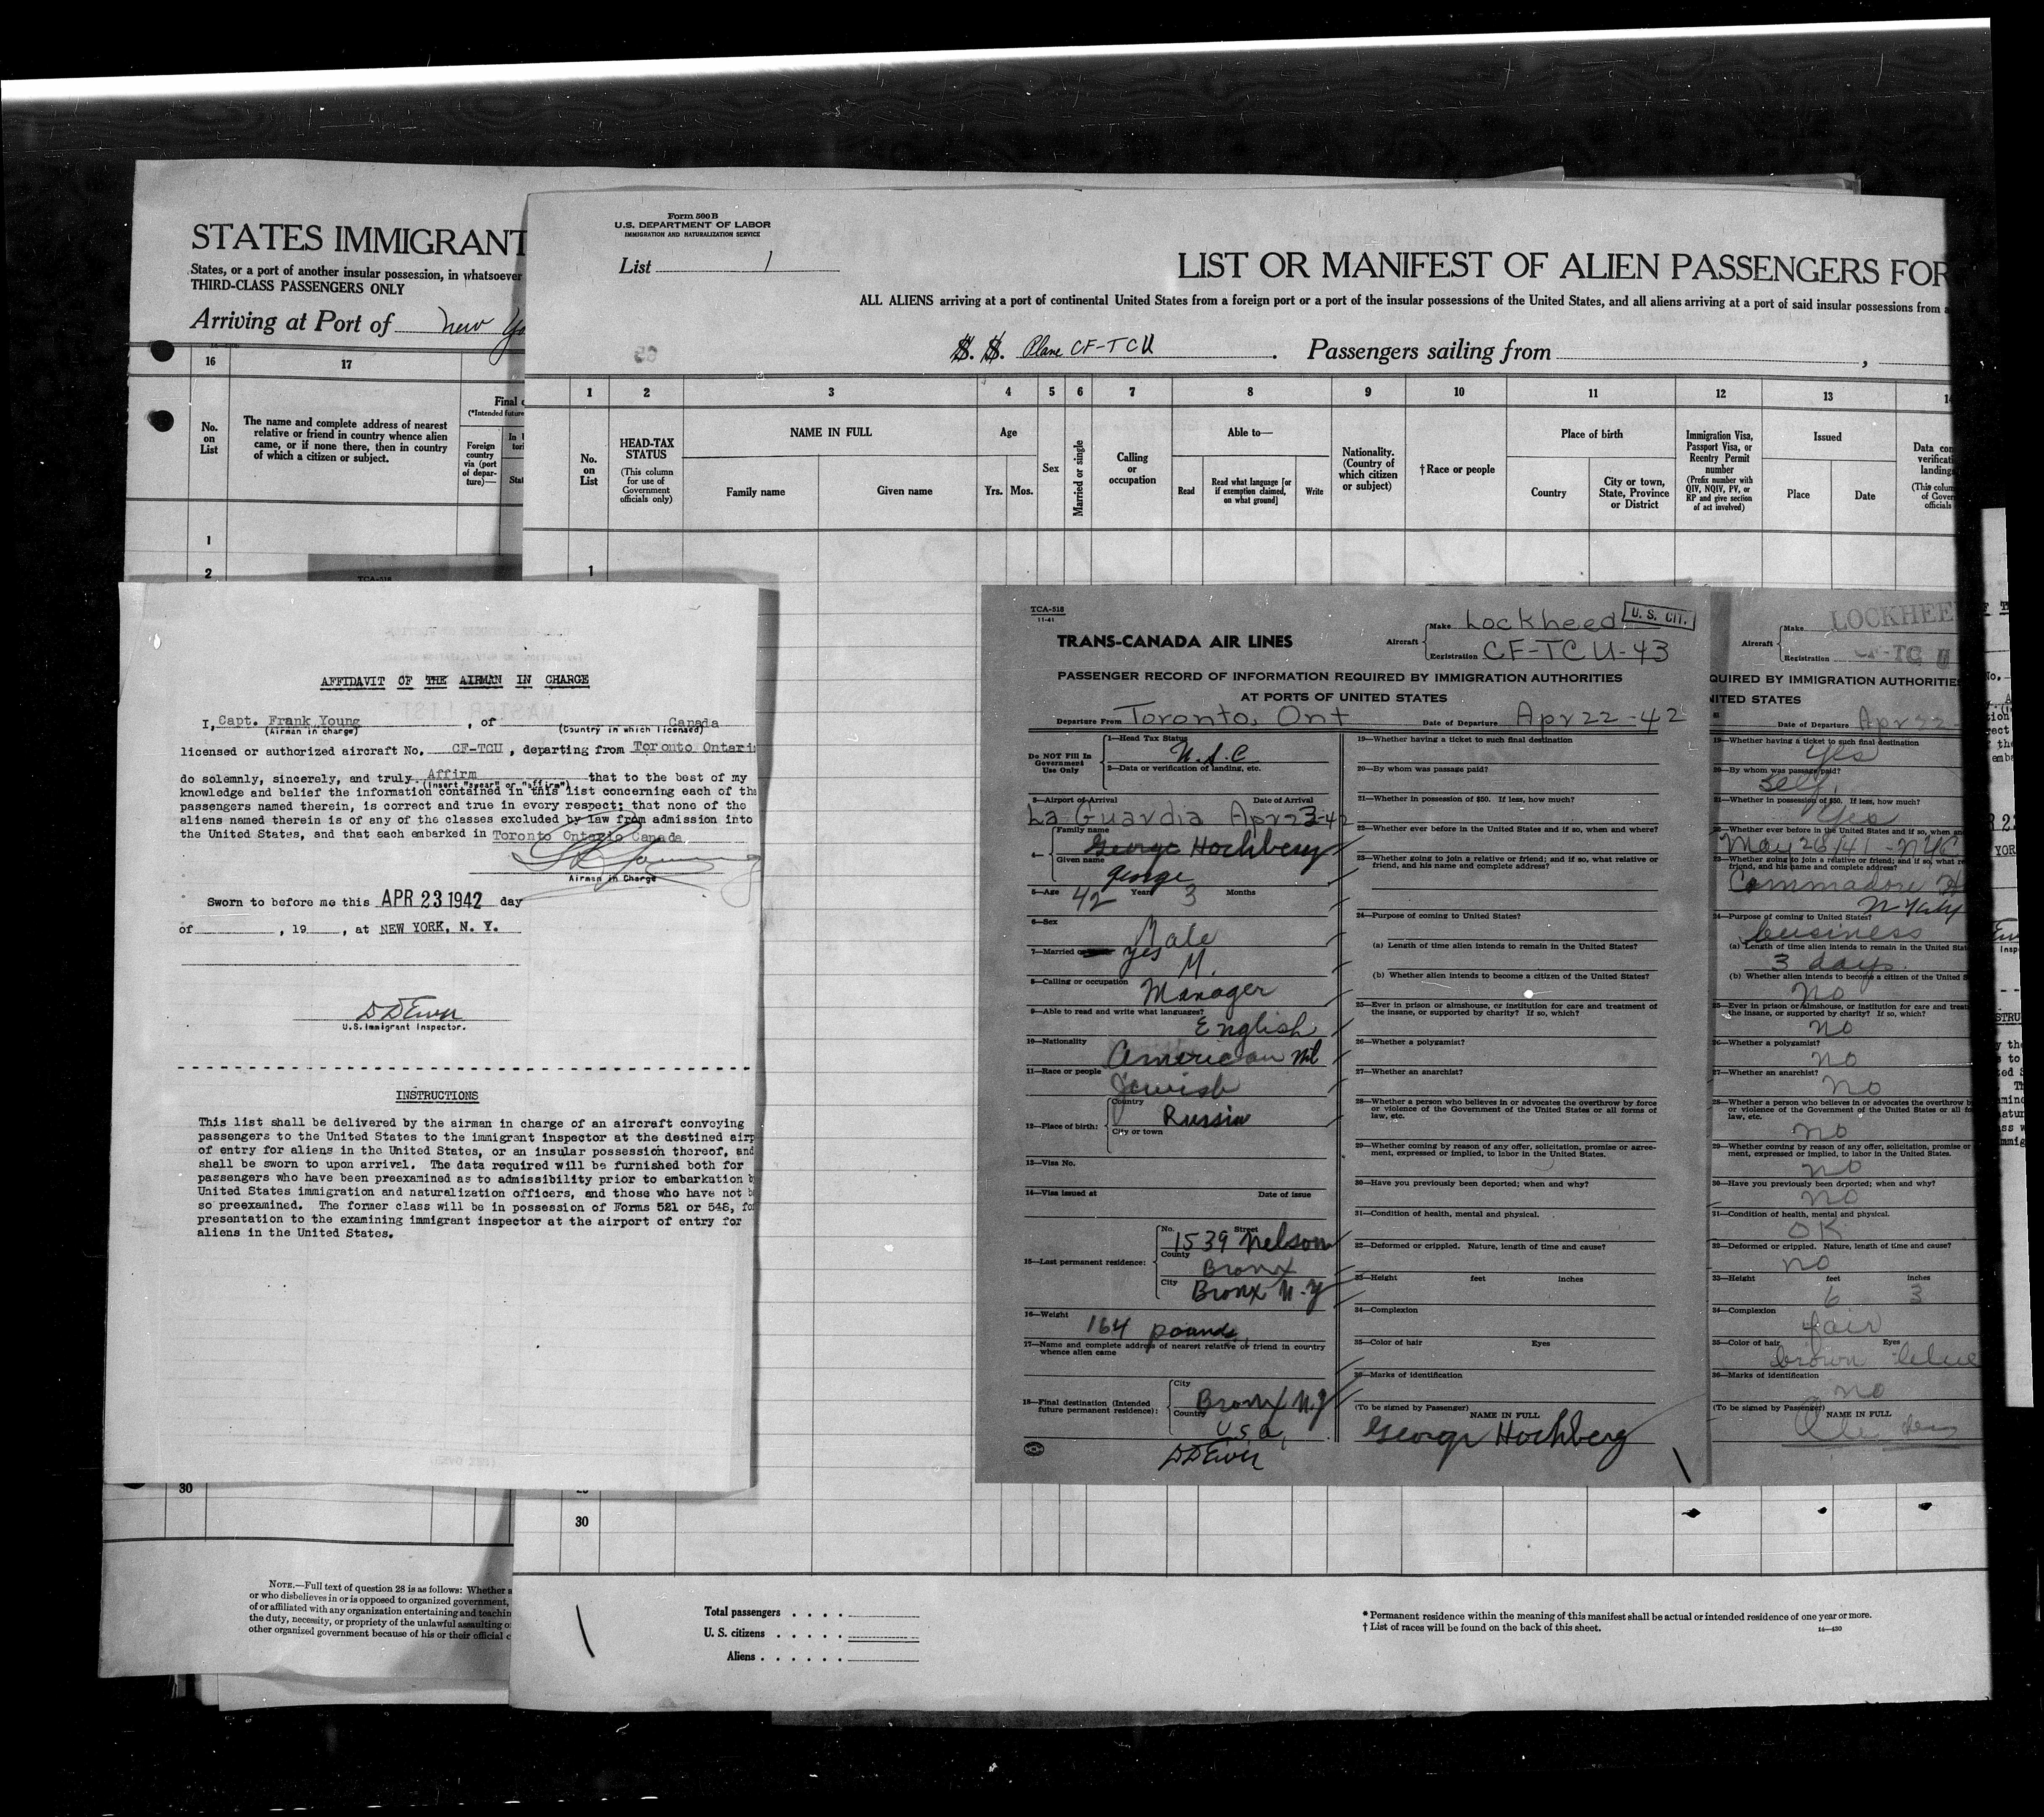 STATES IMMIGRANT
States, or a port of another insular possession, in whatsoever
THIRD-CLASS PASSENGERS ONLY
Arriving at Port of New Yo
16
17
No.
on
List
The name and complete address of nearest
relative or friend in country whence alien
came, or if none there, then in country
of which a citizen or subject.
Final
(*Intended future
Foreign
country
via (port
of depar-
ture)—
1
2
30
NOTE.—Full text of question 28 is as follows: Whether a
or who disbelieves in or is opposed to organized government,
of or affiliated with any organization entertaining and teachin
the duty, necessity, or propriety of the unlawful assaulting o
other organized government because of his or their official c
Form 500 B
U.S. DEPARTMENT OF LABOR
IMMIGRATION AND NATURALIZATION SERVICE
List 1
LIST OR MANIFEST OF ALIEN PASSENGERS FOR
ALL ALIENS arriving at a port of continental United States from a foreign port or a port of the insular possessions of the United States, and all aliens arriving at a port of said insular possessions from a
S. S. Plane CF-TCU . Passengers sailing from ,
1 2 3 4 5 6 7 8 9 10 11 12 13 14
No.
on
List
HEAD-TAX
STATUS
(This column
for use of
Government
officials only)
NAME IN FULL
Family name
Given name
Age
Yrs. Mos.
Sex
Married or single
Calling
or
occupation
Able to—
Read
Read what language [or
if exemption claimed,
on what ground]
Write
Nationality.
(Country of
which citizen
or subject)
†Race or people
Place of birth
Country
City or town,
State, Province
or District
Immigration Visa,
Passport Visa, or
Reentry Permit
number
(Prefix number with
QIV, NQIV, PV, or
RP and give section
of act involved)
Issued
Place
Date
Data con
verificati
landing
(This colum
of Gover
officials
1
30
Total passengers . . . .
U. S. citizens . . . . .
Aliens . . . . . .
* Permanent residence within the meaning of this manifest shall be actual or intended residence of one year or more.
† List of races will be found on the back of this sheet.
14—430
AFFIDAVIT OF THE AIRMAN IN CHARGE
I, Capt. Frank Young , of Canada
(Airman in charge) (Country in which licensed)
licensed or authorized aircraft No. CF-TCU , departing from Toronto Ontari
do solemnly, sincerely, and truly Affirm that to the best of my
(Insert "swear" or "affirm")
knowledge and belief the information contained in this list concerning each of the
passengers named therein, is correct and true in every respect; that none of the
aliens named therein is of any of the classes excluded by law from admission into
the United States, and that each embarked in Toronto Ontario Canada
Airman in Charge
Sworn to before me this APR 23 1942 day
of , 19 , at NEW YORK, N. Y.
U.S. Immigrant Inspector.
INSTRUCTIONS
This list shall be delivered by the airman in charge of an aircraft conveying
passengers to the United States to the immigrant inspector at the destined airp
of entry for aliens in the United States, or an insular possession thereof, and
shall be sworn to upon arrival. The data required will be furnished both for
passengers who have been preexamined as to admissibility prior to embarkation b
United States immigration and naturalization officers, and those who have not b
so preexamined. The former class will be in possession of Forms 521 or 548, for
presentation to the examining immigrant inspector at the airport of entry for
aliens in the United States.
TCA-518
11-41
TRANS-CANADA AIR LINES
Aircraft
Make Lockheed
U. S. CIT.
Registration CF-TCU-43
PASSENGER RECORD OF INFORMATION REQUIRED BY IMMIGRATION AUTHORITIES
AT PORTS OF UNITED STATES
Departure From Toronto, Ont Date of Departure Apr 22-42
Do NOT Fill In
Government
Use Only
1—Head Tax Status
U.S.C
2—Data or verification of landing, etc.
3—Airport of Arrival Date of Arrival
La Guardia Apr 23-42
4—
Family name
George Hochberg
Given name
George
5—Age 42 Years 3 Months
6—Sex
Male
7—Married or yes
M.
8—Calling or occupation
Manager
9—Able to read and write what languages?
English
10—Nationality
American
11—Race or people
Jewish
12—Place of birth:
Country
Russia
City or town
13—Visa No.
14—Visa issued at Date of issue
15—Last permanent residence:
No. Street
1539 Nelson
County
Bronx
City
Bronx N-Y
16—Weight
164 pounds
17—Name and complete address of nearest relative or friend in country
whence alien came
18—Final destination (Intended
future permanent residence):
City
Bronx N.Y
Country
U.S.A.
19—Whether having a ticket to such final destination
20—By whom was passage paid?
21—Whether in possession of $50. If less, how much?
22—Whether ever before in the United States and if so, when and where?
23—Whether going to join a relative or friend; and if so, what relative or
friend, and his name and complete address?
24—Purpose of coming to United States?
(a) Length of time alien intends to remain in the United States?
(b) Whether alien intends to become a citizen of the United States?
25—Ever in prison or almshouse, or institution for care and treatment of
the insane, or supported by charity? If so, which?
26—Whether a polygamist?
27—Whether an anarchist?
28—Whether a person who believes in or advocates the overthrow by force
or violence of the Government of the United States or all forms of
law, etc.
29—Whether coming by reason of any offer, solicitation, promise or agree-
ment, expressed or implied, to labor in the United States.
30—Have you previously been deported; when and why?
31—Condition of health, mental and physical.
32—Deformed or crippled. Nature, length of time and cause?
33—Height feet inches
34—Complexion
35—Color of hair Eyes
36—Marks of identification
(To be signed by Passenger)
NAME IN FULL
George Hochberg
Aircraft
Make LOCKHEE
Registration CF-TC U
QUIRED BY IMMIGRATION AUTHORITIE
NITED STATES
Date of Departure Apr 22-
19—Whether having a ticket to such final destination
Yes
20—By whom was passage paid?
Self.
21—Whether in possession of $50. If less, how much?
Yes
22—Whether ever before in the United States and if so, when an
May 28/41 - NYC
23—Whether going to join a relative or friend; and if so, what re
friend, and his name and complete address?
Commadore H
N Y City
24—Purpose of coming to United States?
business
(a) Length of time alien intends to remain in the United Stat
3 days.
(b) Whether alien intends to become a citizen of the United S
No
25—Ever in prison or almshouse, or institution for care and treat
the insane, or supported by charity? If so, which?
no
26—Whether a polygamist?
no
27—Whether an anarchist?
no
28—Whether a person who believes in or advocates the overthrow b
or violence of the Government of the United States or all fo
law, etc.
no
29—Whether coming by reason of any offer, solicitation, promise or
ment, expressed or implied, to labor in the United States.
no
30—Have you previously been deported; when and why?
no
31—Condition of health, mental and physical.
OK
32—Deformed or crippled. Nature, length of time and cause?
no
33—Height feet inches
6 3
34—Complexion
fair
35—Color of hair Eyes
brown blue
36—Marks of identification
no
(To be signed by Passenger)
NAME IN FULL